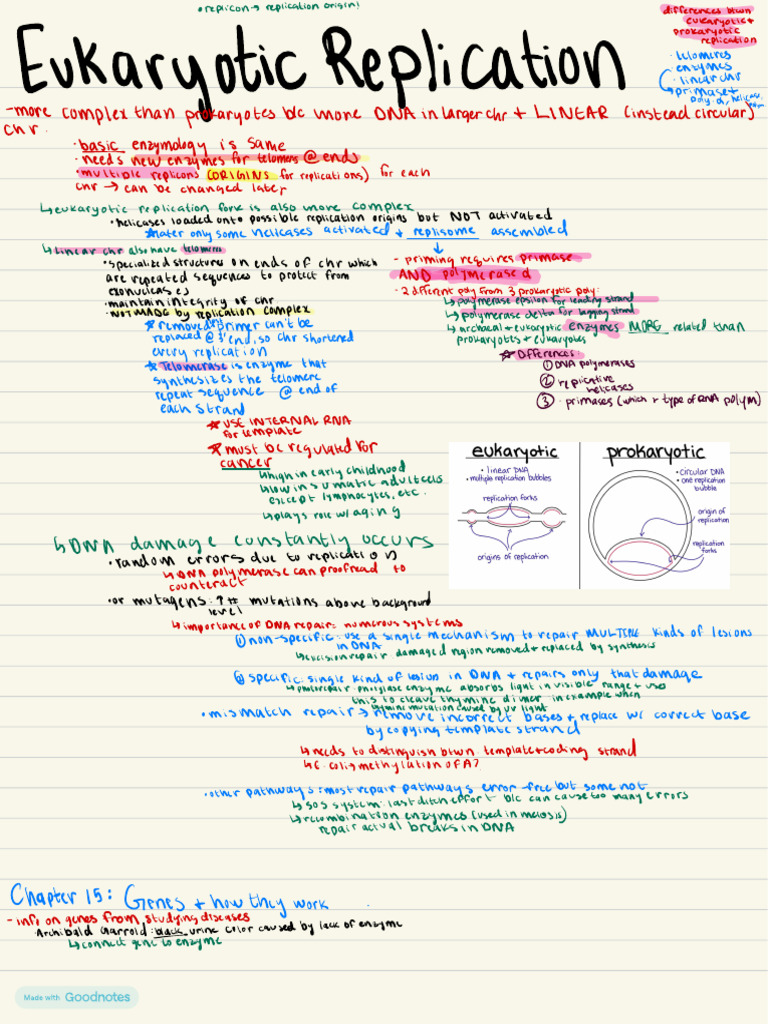 • replicon → replication origin!
differences btwn
eukaryotic +
prokaryotic
replication
• telomeres
enzymes
• linear chr
primase +
poly. α, helicase,
Eukaryotic Replication
- more complex than prokaryotes b/c more DNA in larger chr + LINEAR (instead circular)
chr.
• basic enzymology is same
• needs new enzymes for telomers @ ends
• multiple replicons (ORIGINS for replications) for each
chr → can be changed later
↳ eukaryotic replication fork is also more complex
• helicases loaded onto possible replication origins but NOT activated
★ later only some helicases activated + replisome assembled
↳ Linear chr also have telomers
• specialized structures on ends of chr which
are repeated sequences to protect from
exonucleases
• maintain integrity of chr
• NOT MADE by replication complex
★ removed primer can't be
replaced @ 3' end, so chr shortened
every replication
★ Telomerase is enzyme that
synthesizes the telomere
repeat sequence @ end of
each strand
★ USE INTERNAL RNA
for template
★ must be regulated for
cancer
↳ high in early childhood
↳ low in sumatic adult cells
except lymphocytes, etc.
↳ plays role w/ aging
- priming requires primase
AND polymerase α
• 2 different poly from 3 prokaryotic poly:
↳ polymerase epsilon for leading strand
↳ polymerase delta for lagging strand
↳ archaeal + eukaryotic enzymes MORE related than
prokaryotes + eukaryotes
★ Differences:
① DNA polymerases
② replicative
helicases
③ • primases (which + type of RNA polym)
eukaryotic
• linear DNA
• multiple replication bubbles
replication forks
origins of replication
prokaryotic
• circular DNA
• one replication
bubble
origin of
replication
replication
forks
↳ DNA damage constantly occurs
• random errors due to replication
↳ DNA polymerase can proofread to
counteract
• or mutagens: ↑ # mutations above background
level
↳ importance of DNA repair: numerous systems
① non-specific: use a single mechanism to repair MULTIPLE kinds of lesions
in DNA
↳ excision repair damaged region removed + replaced by synthesis
② specific: single kind of lesion in DNA + repairs only that damage
↳ photorepair: photolyase enzyme absorbs light in visible range + uses
this to cleave thymine dimer in example when
thymine mutation caused by uv light
• mismatch repair → remove incorrect bases + replace w/ correct base
by copying template strand
↳ needs to distinguish btwn. template + coding strand
↳ E. coli → methylation of A?
• other pathways: most repair pathways error-free but some not
↳ SOS system: last ditch effort b/c can cause too many errors
↳ recombination enzymes (used in meiosis)
repair actual breaks in DNA
Chapter 15: Genes + how they work
- info on genes from studying diseases
• Archibald Garrod: black urine color caused by lack of enzyme
↳ connect gene to enzyme
Made with Goodnotes